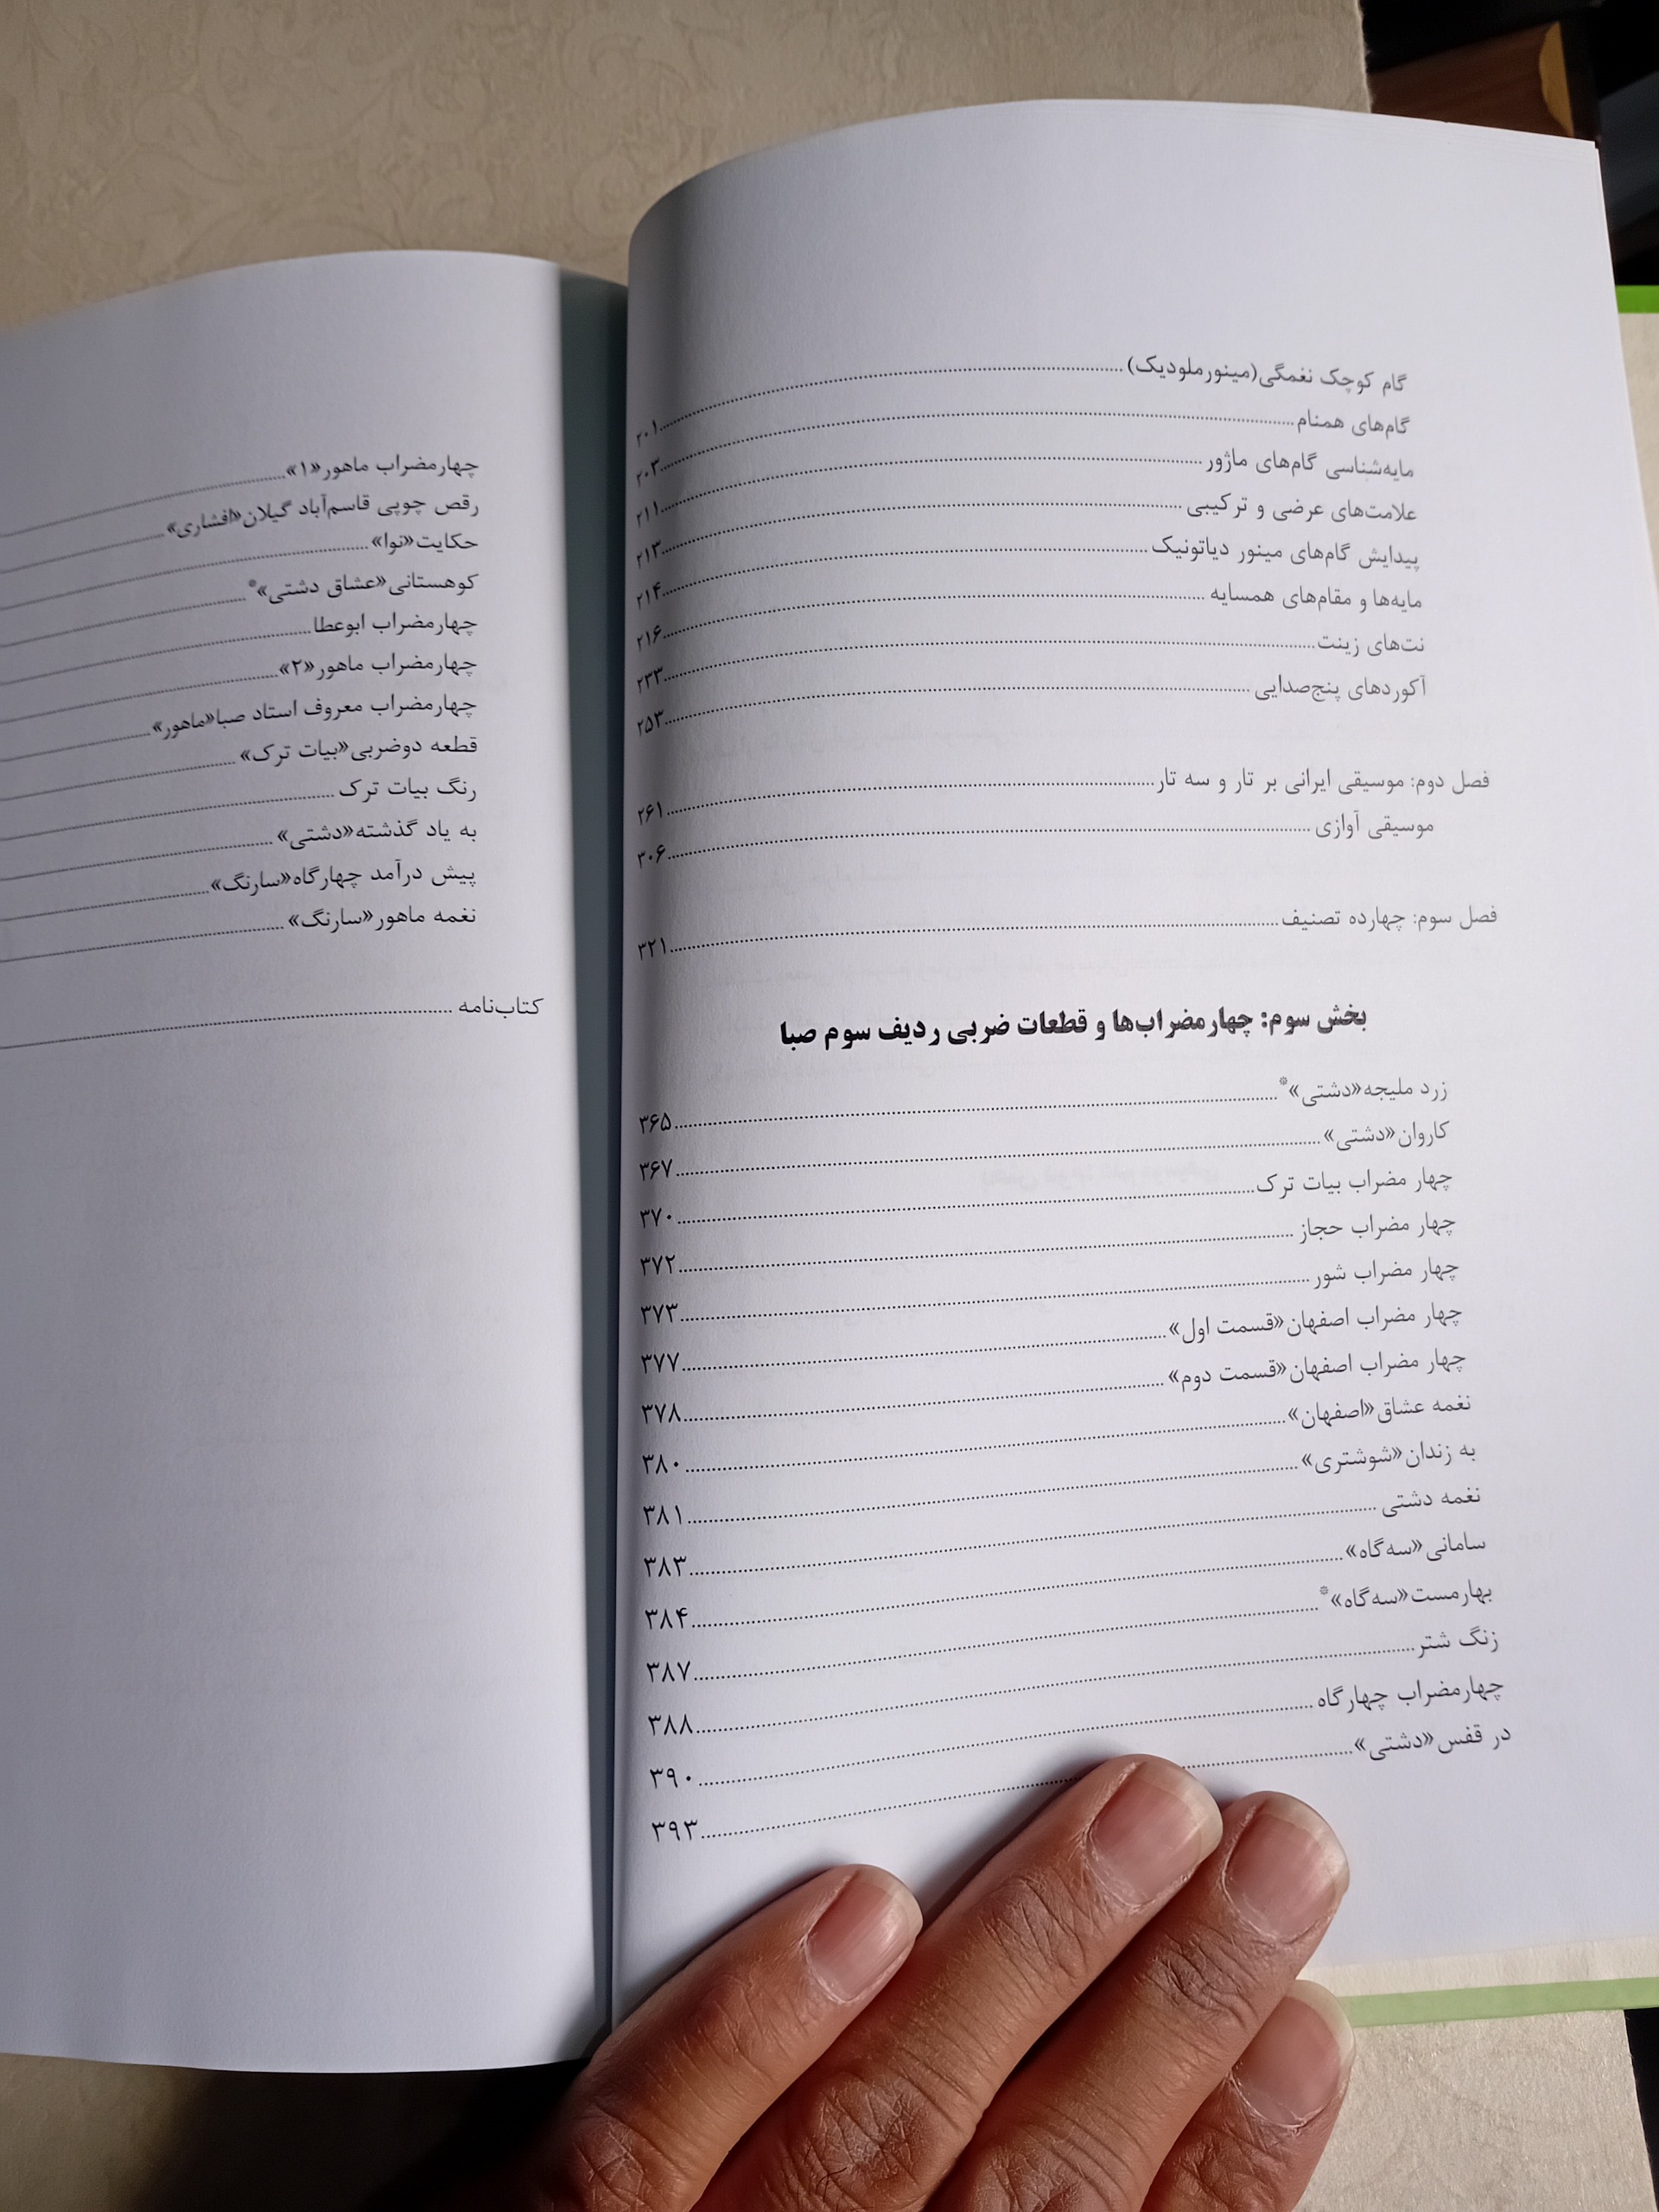 گام کوچک نغمگی(مینورملودیک)........۲۰۱
گام‌های همنام........۲۰۳
مایه‌شناسی گام‌های ماژور........۲۱۱
علامت‌های عرضی و ترکیبی........۲۱۳
پیدایش گام‌های مینور دیاتونیک........۲۱۴
مایه‌ها و مقام‌های همسایه........۲۱۶
نت‌های زینت........۲۳۳
آکوردهای پنج‌صدایی........۲۵۳
فصل دوم: موسیقی ایرانی بر تار و سه تار........۲۶۱
موسیقی آوازی........۳۰۶
فصل سوم: چهارده تصنیف........۳۲۱
بخش سوم: چهارمضراب‌ها و قطعات ضربی ردیف سوم صبا
زرد ملیجه«دشتی»*........۳۶۵
کاروان«دشتی»........۳۶۷
چهار مضراب بیات ترک........۳۷۰
چهار مضراب حجاز........۳۷۲
چهار مضراب شور........۳۷۳
چهار مضراب اصفهان«قسمت اول»........۳۷۷
چهار مضراب اصفهان«قسمت دوم»........۳۷۸
نغمه عشاق«اصفهان»........۳۸۰
به زندان«شوشتری»........۳۸۱
نغمه دشتی........۳۸۳
سامانی«سه‌گاه»........۳۸۴
بهارمست«سه‌گاه»*........۳۸۷
زنگ شتر........۳۸۸
چهارمضراب چهارگاه........۳۹۰
در قفس«دشتی»........۳۹۳
چهارمضراب ماهور«۱»........
رقص چوپی قاسم‌آباد گیلان«افشاری»........
حکایت«نوا»........
کوهستانی«عشاق دشتی»*........
چهارمضراب ابوعطا........
چهارمضراب ماهور«۲»........
چهارمضراب معروف استاد صبا«ماهور»........
قطعه دوضربی«بیات ترک»........
رنگ بیات ترک........
به یاد گذشته«دشتی»........
پیش درآمد چهارگاه«سارنگ»........
نغمه ماهور«سارنگ»........
کتاب‌نامه........